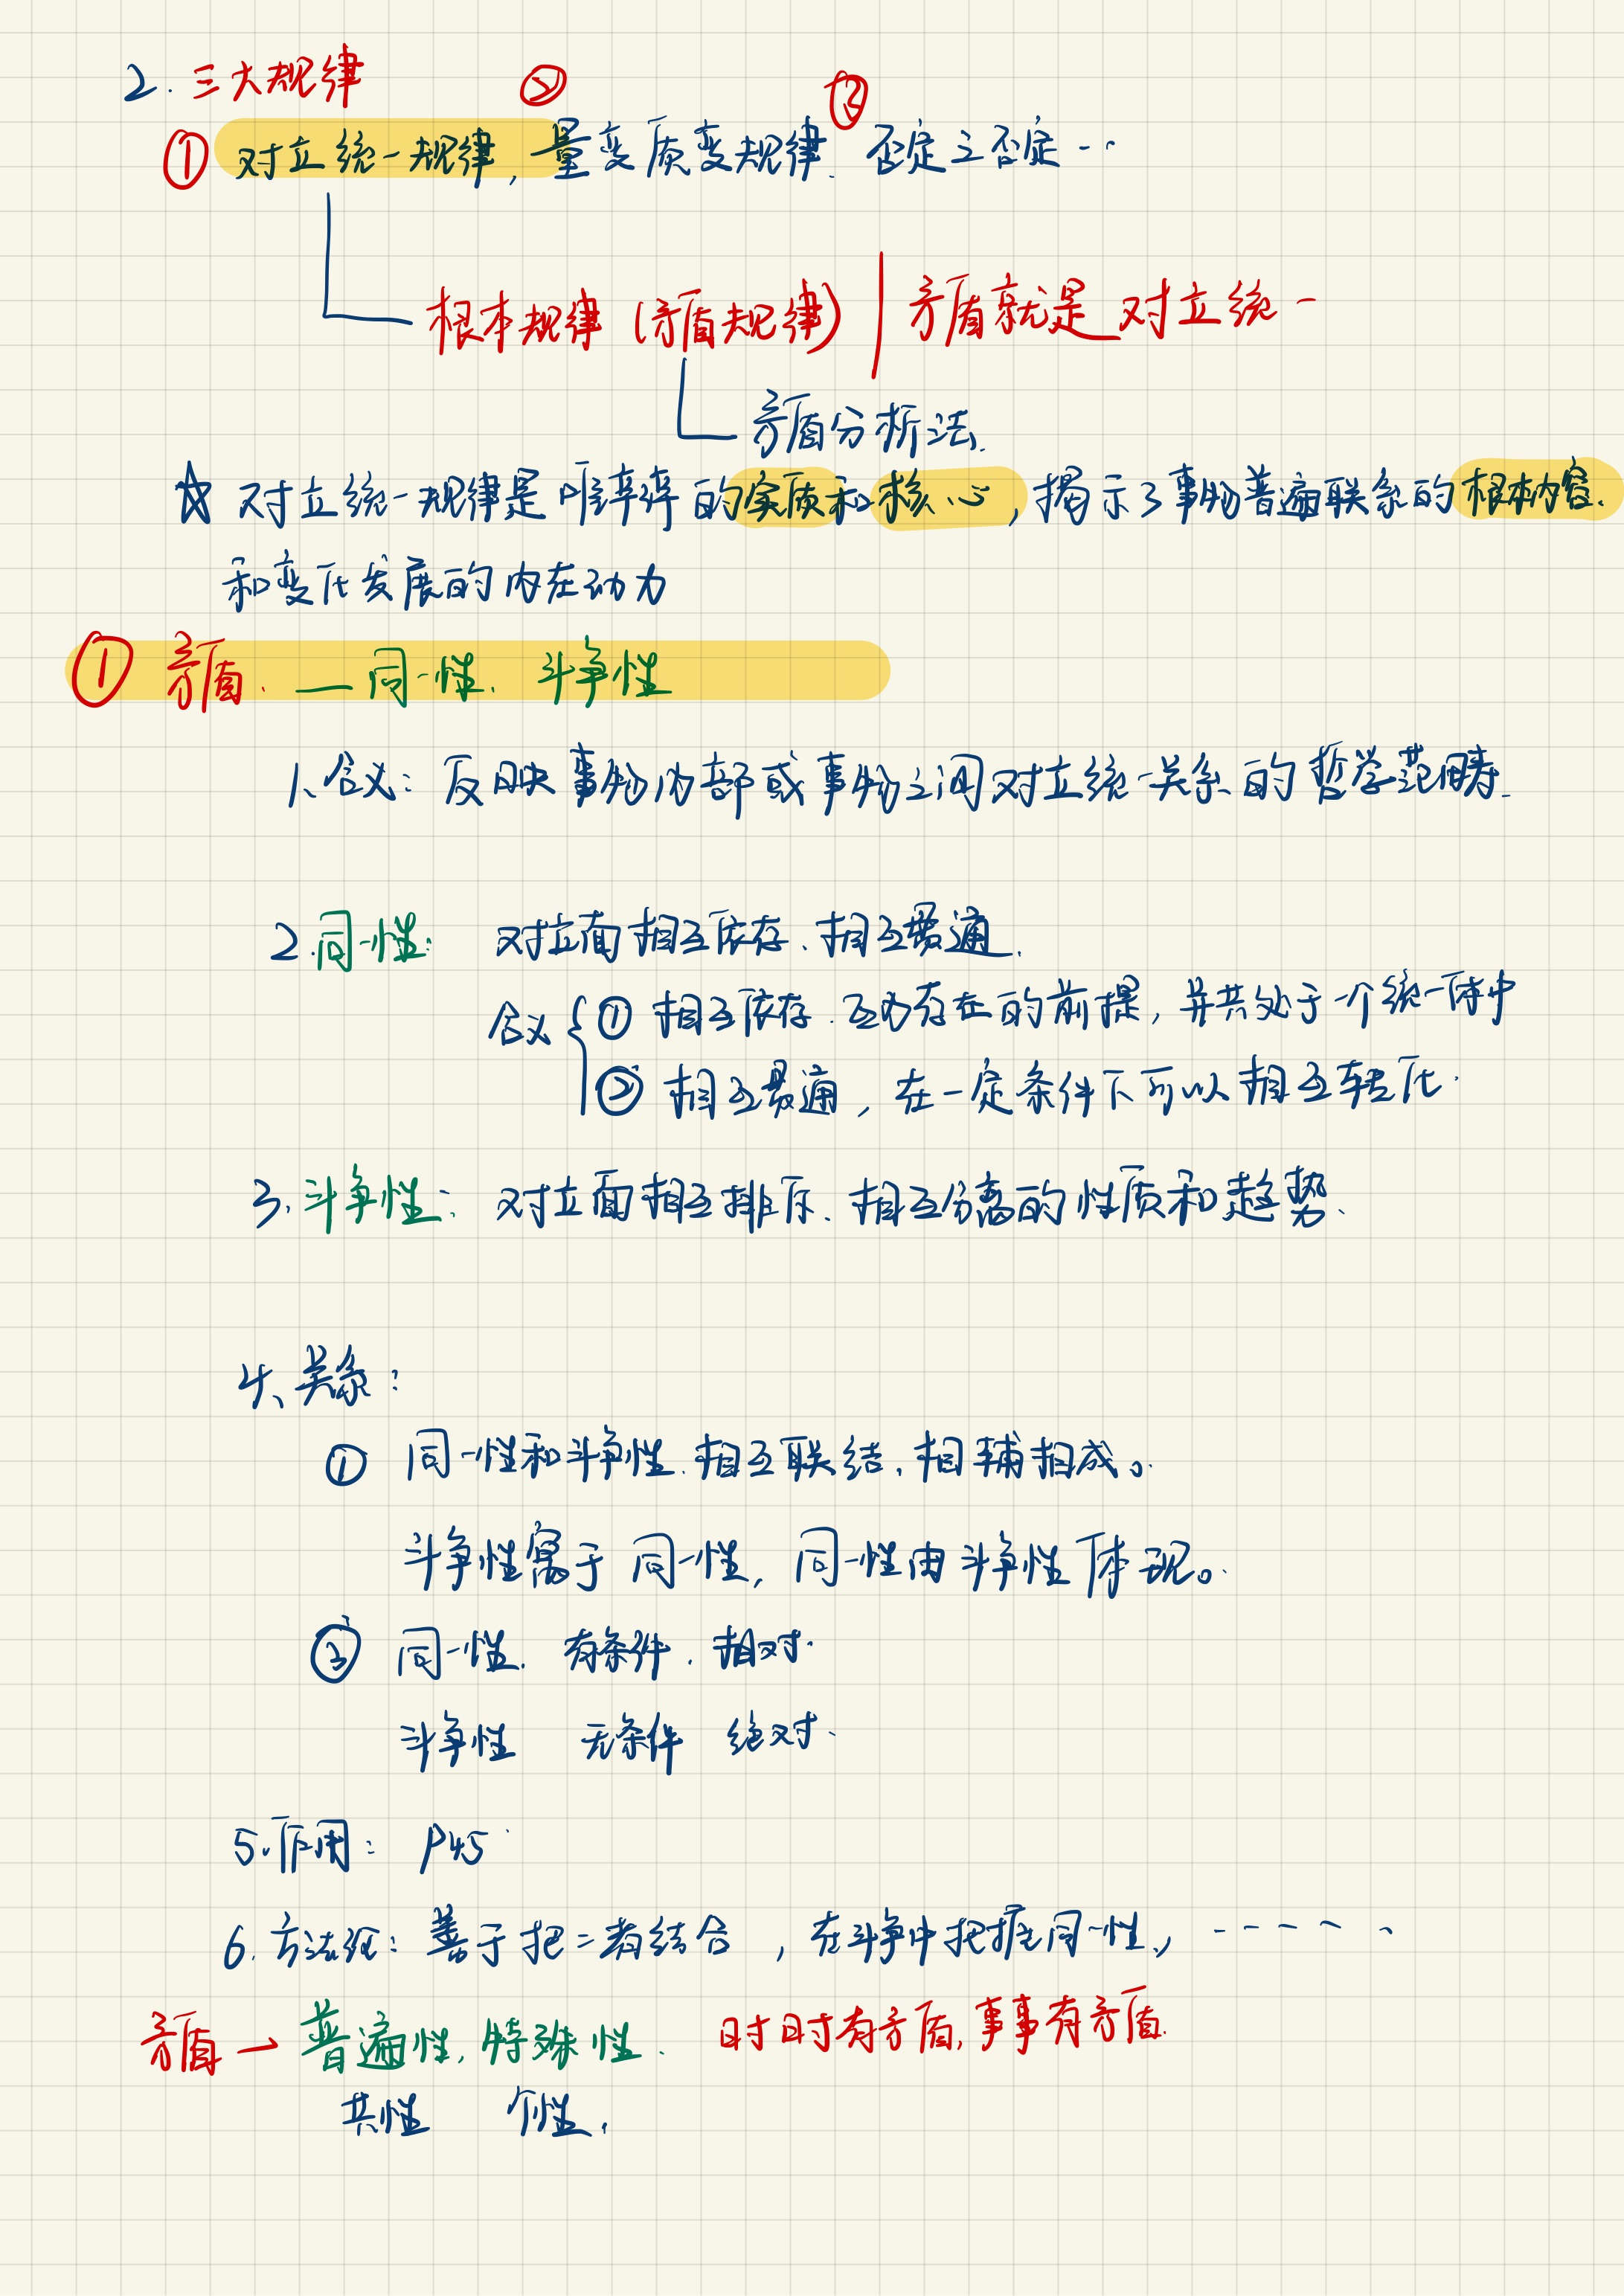 2. 三大规律 ② ③
① 对立统一规律, 量变质变规律. 否定之否定 - -
根本规律 (矛盾规律) | 矛盾就是 对立统一
矛盾分析法.
☆ 对立统一规律是 唯辛 的实质和核心, 揭示了事物普遍联系的根本内容.
和变化发展的内在动力
① 矛盾. — 同一性. 斗争性
1、含义: 反映事物内部或事物之间对立统一关系的哲学范畴.
2.同一性: 对立面相互依存、相互贯通.
含义 { ① 相互依存. 互为存在的前提, 并共处于一个统一体中
② 相互贯通, 在一定条件下可以相互转化.
3.斗争性: 对立面相互排斥. 相互分离的性质和趋势、
4、关系:
① 同一性和斗争性. 相互联结, 相辅相成。
斗争性寓于同一性, 同一性由斗争性体现。
② 同一性. 有条件. 相对.
斗争性 无条件 绝对.
5.作用: P45
6. 方法论: 善于把二者结合, 在斗争中把握同一性, - - - - - -
矛盾 → 普遍性, 特殊性. 时时有矛盾, 事事有矛盾.
共性 个性.